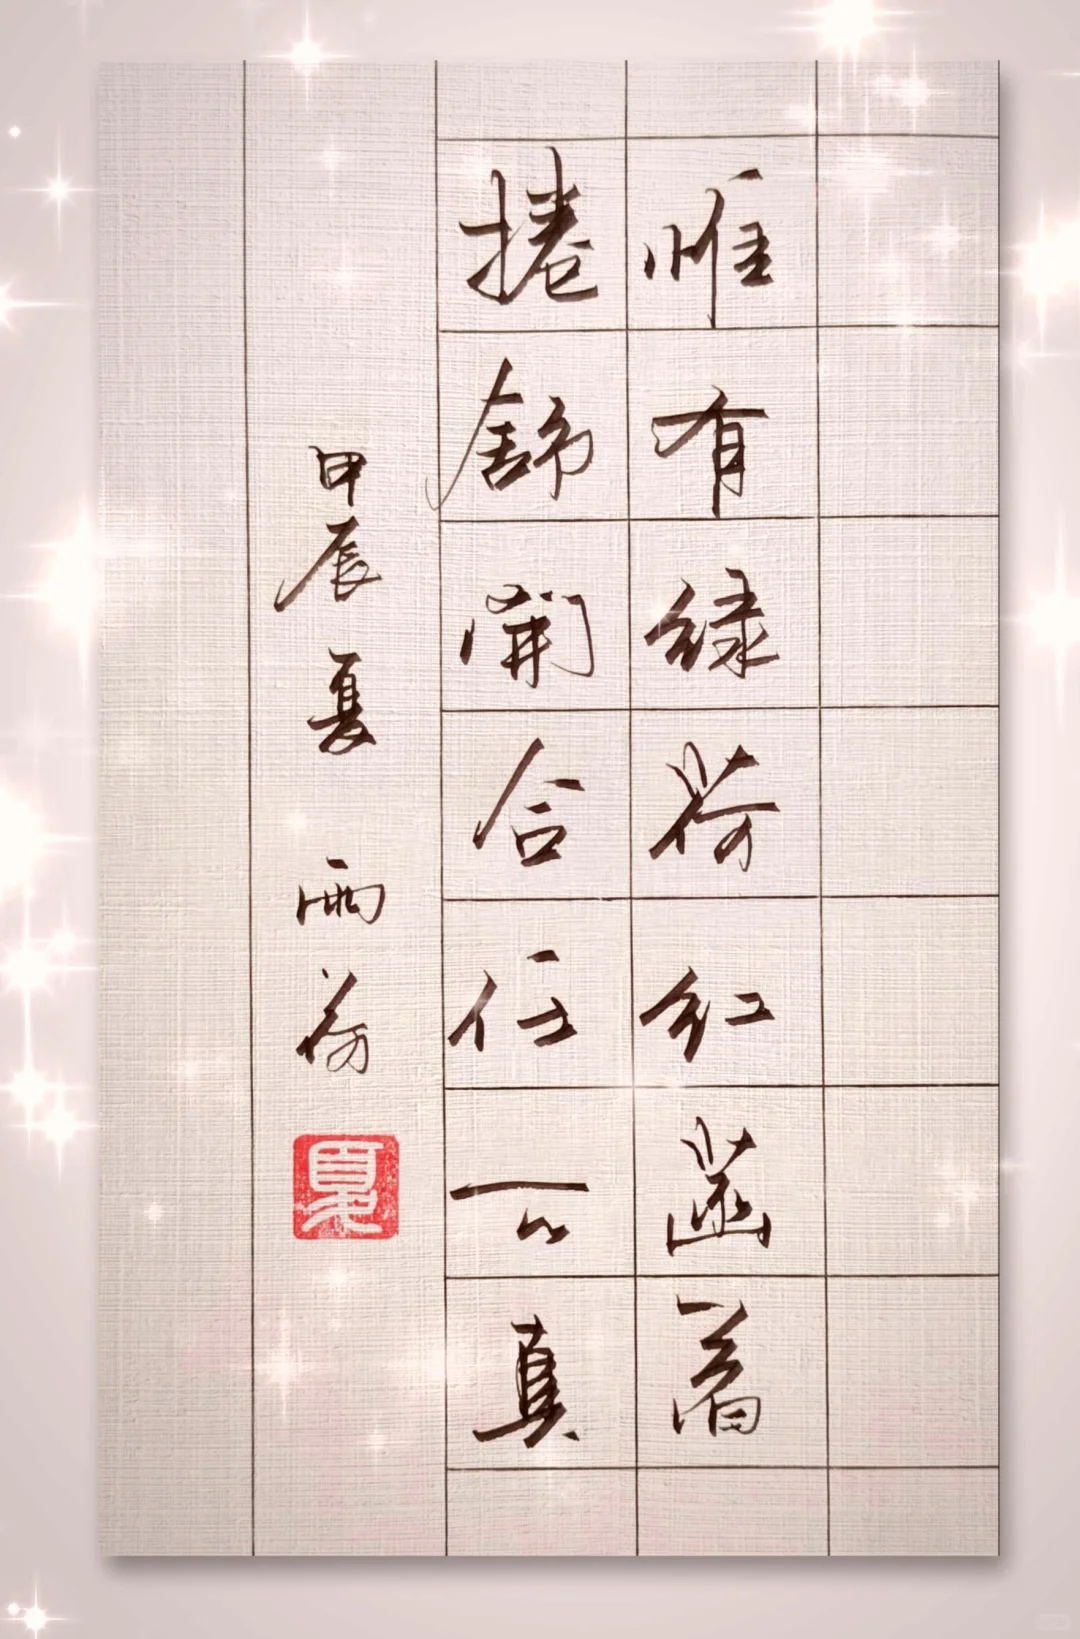 惟有绿荷红菡萏
捲舒開合任天真
甲辰夏 雨荷
夏